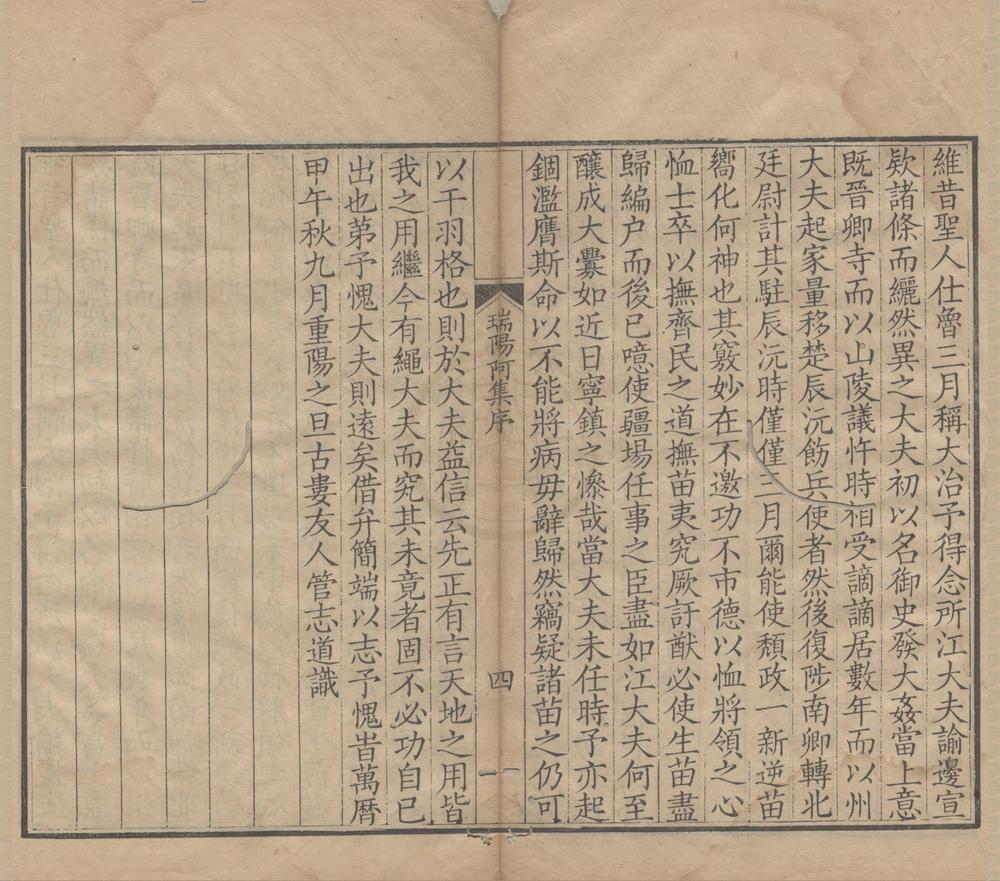 維昔聖人仕魯三月稱大治予得念所江大夫諭邊宣
欵諸條而纚然異之大夫初以名御史發大姦當上意
既晉卿寺而以山陵議忤時相受謫謫居數年而以州
大夫起家量移楚辰沅飭兵使者然後復陟南卿轉北
廷尉計其駐辰沅時僅僅三月爾能使頹政一新逆苗
嚮化何神也其竅妙在不邀功不市德以恤將領之心
恤士卒以撫齊民之道撫苗夷究厥訏猷必使生苗盡
歸編户而後已噫使疆場任事之臣盡如江大夫何至
釀成大釁如近日寧鎮之慘哉當大夫未任時予亦起
錮濫膺斯命以不能將病毋辭歸然竊疑諸苗之仍可
瑞陽阿集序
四
以干羽格也則於大夫益信云先正有言天地之用皆
我之用繼今有繩大夫而究其未竟者固不必功自己
出也第予愧大夫則遠矣借弁簡端以志予愧旹萬曆
甲午秋九月重陽之旦古婁友人管志道識